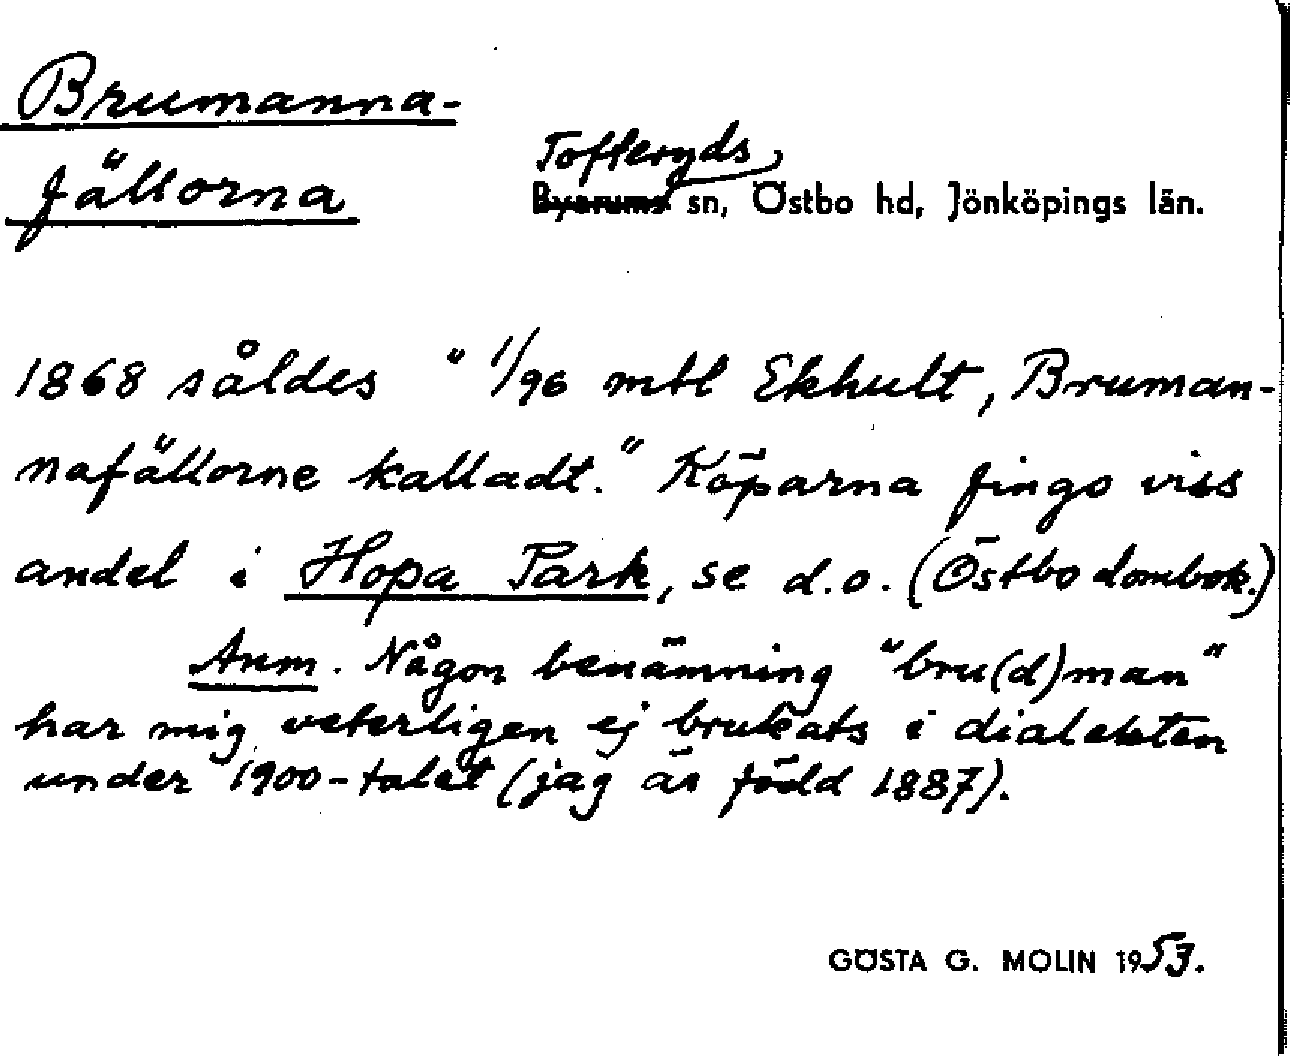 Brumanna-
fällorna
Tofteryds
Byarums sn, Östbo hd, Jönköpings län.
1868 såldes " 1/96 mtl Ekhult, Bruman-
nafällorne kalladt." Köparna fingo viss
andel i Hopa Park, se d.o. (Östbo dombok.)
Anm. Någon benämning "bru(d)man"
har mig veterligen ej brukats i dialekten
under 1900-talet (jag är född 1887).
GÖSTA G. MOLIN 1953.